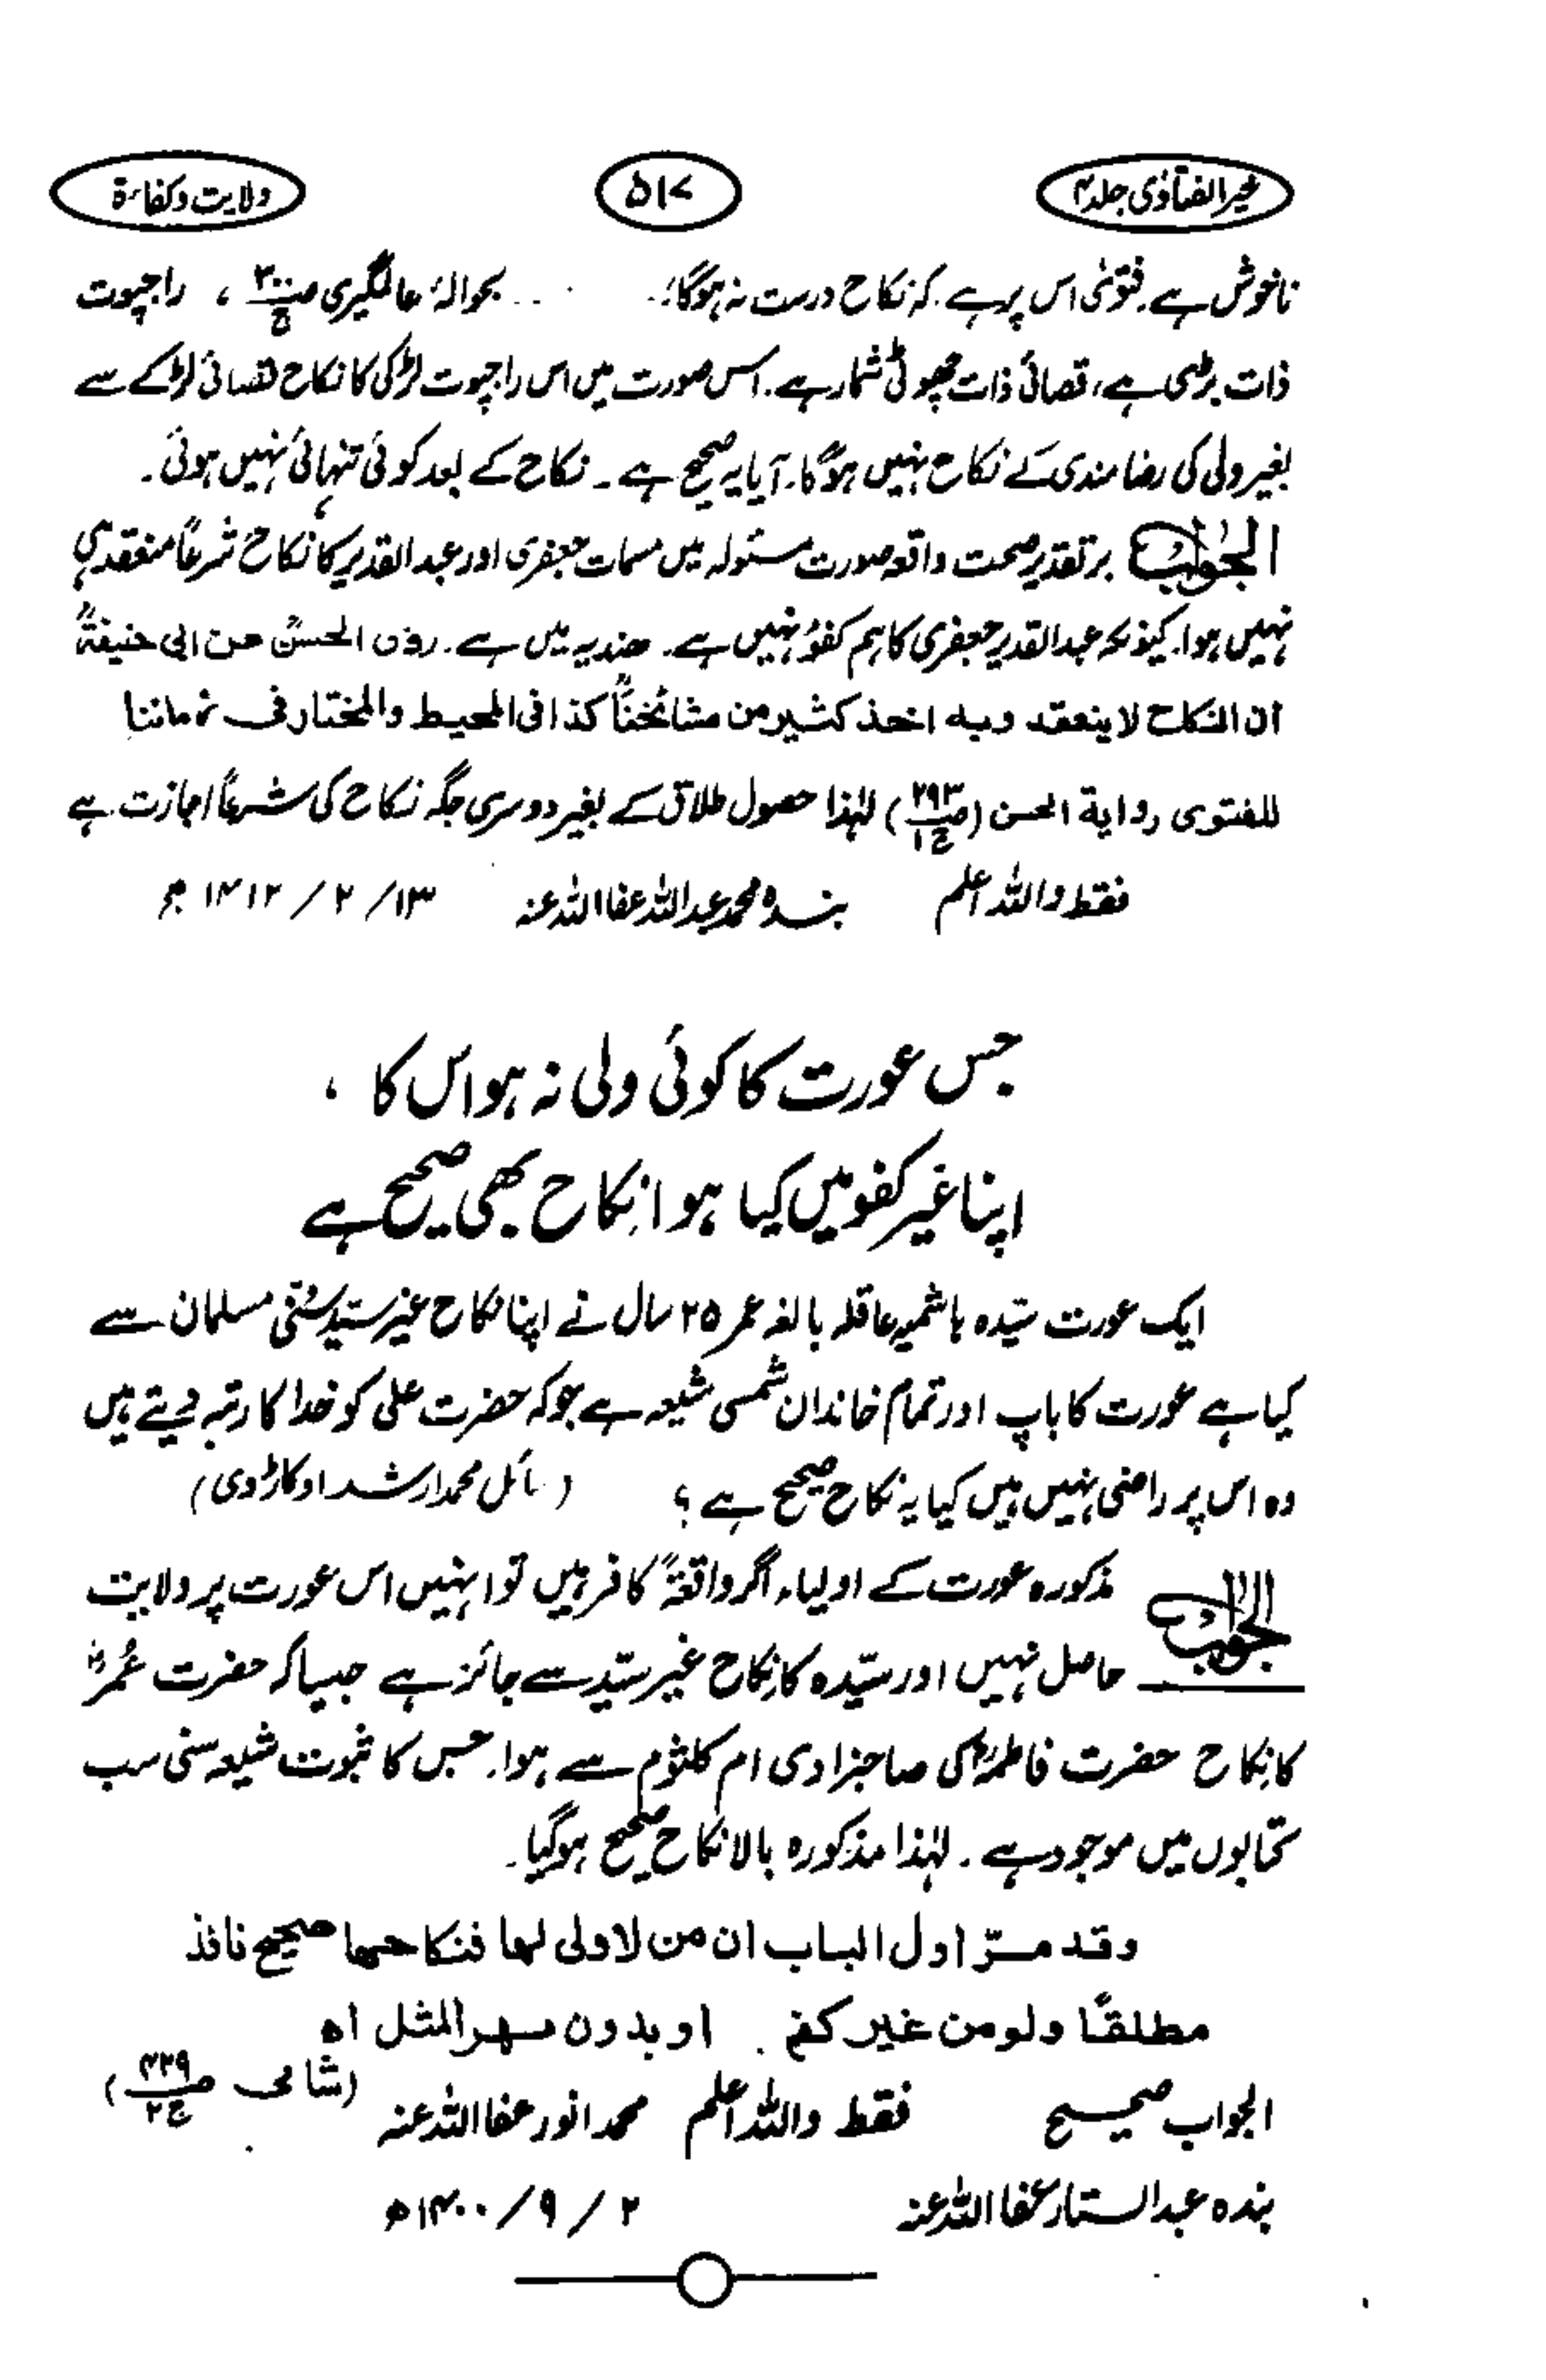 خیر الفتاوٰی جلد ۴
۵۱۷
ولایت وکفاءۃ
ناخوش ہے۔ فتویٰ اس پر ہے۔ کہ نکاح درست نہ ہوگا؛ ۔۔۔ بحوالہ عالمگیری ، راجپوت
ذات بڑی ہے، قصائی ذات چھوٹی شمار ہے۔ اس صورت میں اس راجپوت لڑکی کا نکاح قصائی لڑکے سے
بغیر ولی کی رضامندی کے نکاح نہیں ہوگا۔ آیا یہ صحیح ہے۔ نکاح کے بعد کوئی تنہائی نہیں ہوئی۔
الجواب برتقدیر صحت واقعہ صورت مسئولہ میں مسمات جعفری اور عبدالقدیر کا نکاح شرعاً منعقد ہی
نہیں ہوا۔ کیونکہ عبدالقدیر جعفری کا ہم کفوٴ نہیں ہے۔ ھندیہ میں ہے۔ روی الحسنؒ عن ابی حنیفۃؒ
ان النکاح لا ینعقد وبہ اخذ کثیر من مشائخناؒ کذا فی المحیط والمختار فی زماننا
للفتوی روایۃ الحسن (ص۲۹۳ ج۱) لہٰذا حصول طلاق کے بغیر دوسری جگہ نکاح کی شرعاً اجازت ہے
فقط واللہ اعلم بندہ محمد عبداللہ عفا اللہ عنہ ۱۳/ ۲ / ۱۴۱۲ ھ
جس عورت کا کوئی ولی نہ ہو اس کا ،
اپنا غیر کفو میں کیا ہوا نکاح بھی صحیح ہے
ایک عورت سیّدہ ہاشمیہ عاقلہ بالغہ عمر ۲۵ سال نے اپنا نکاح غیر سیّد سُنّی مسلمان سے
کیا ہے عورت کا باپ اور تمام خاندان شمسی شیعہ ہے جو کہ حضرت علی کو خدا کا رتبہ دیتے ہیں
وہ اس پر راضی نہیں ہیں کیا یہ نکاح صحیح ہے ؟ (سائل محمد ارشد اوکاڑوی)
الجواب مذکورہ عورت کے اولیاء اگر واقعۃً کافر ہیں تو انہیں اس عورت پر ولایت
حاصل نہیں اور سیّدہ کا نکاح غیر سیّد سے جائز ہے جیسا کہ حضرت عُمرؓ
کا نکاح حضرت فاطمہؓ کی صاحبزادی ام کلثوم سے ہوا۔ جس کا ثبوت شیعہ سنی سب
کتابوں میں موجود ہے۔ لہٰذا مذکورہ بالا نکاح صحیح ہوگیا۔
وقد مرّ اول الباب ان من لا ولی لہا فنکاحہا صحیح نافذ
مطلقًا ولو من غیر کفٔ او بدون مہر المثل اھ
(شامی ص۳۳۹ ج۲)
الجواب صحیح فقط واللہ اعلم محمد انور عفا اللہ عنہ
بندہ عبدالستار عفا اللہ عنہ ۲ / ۹ / ۱۴۰۰ھ